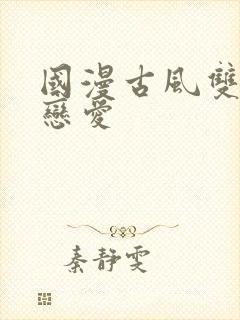 國漫古風雙
戀愛
秦靜雯